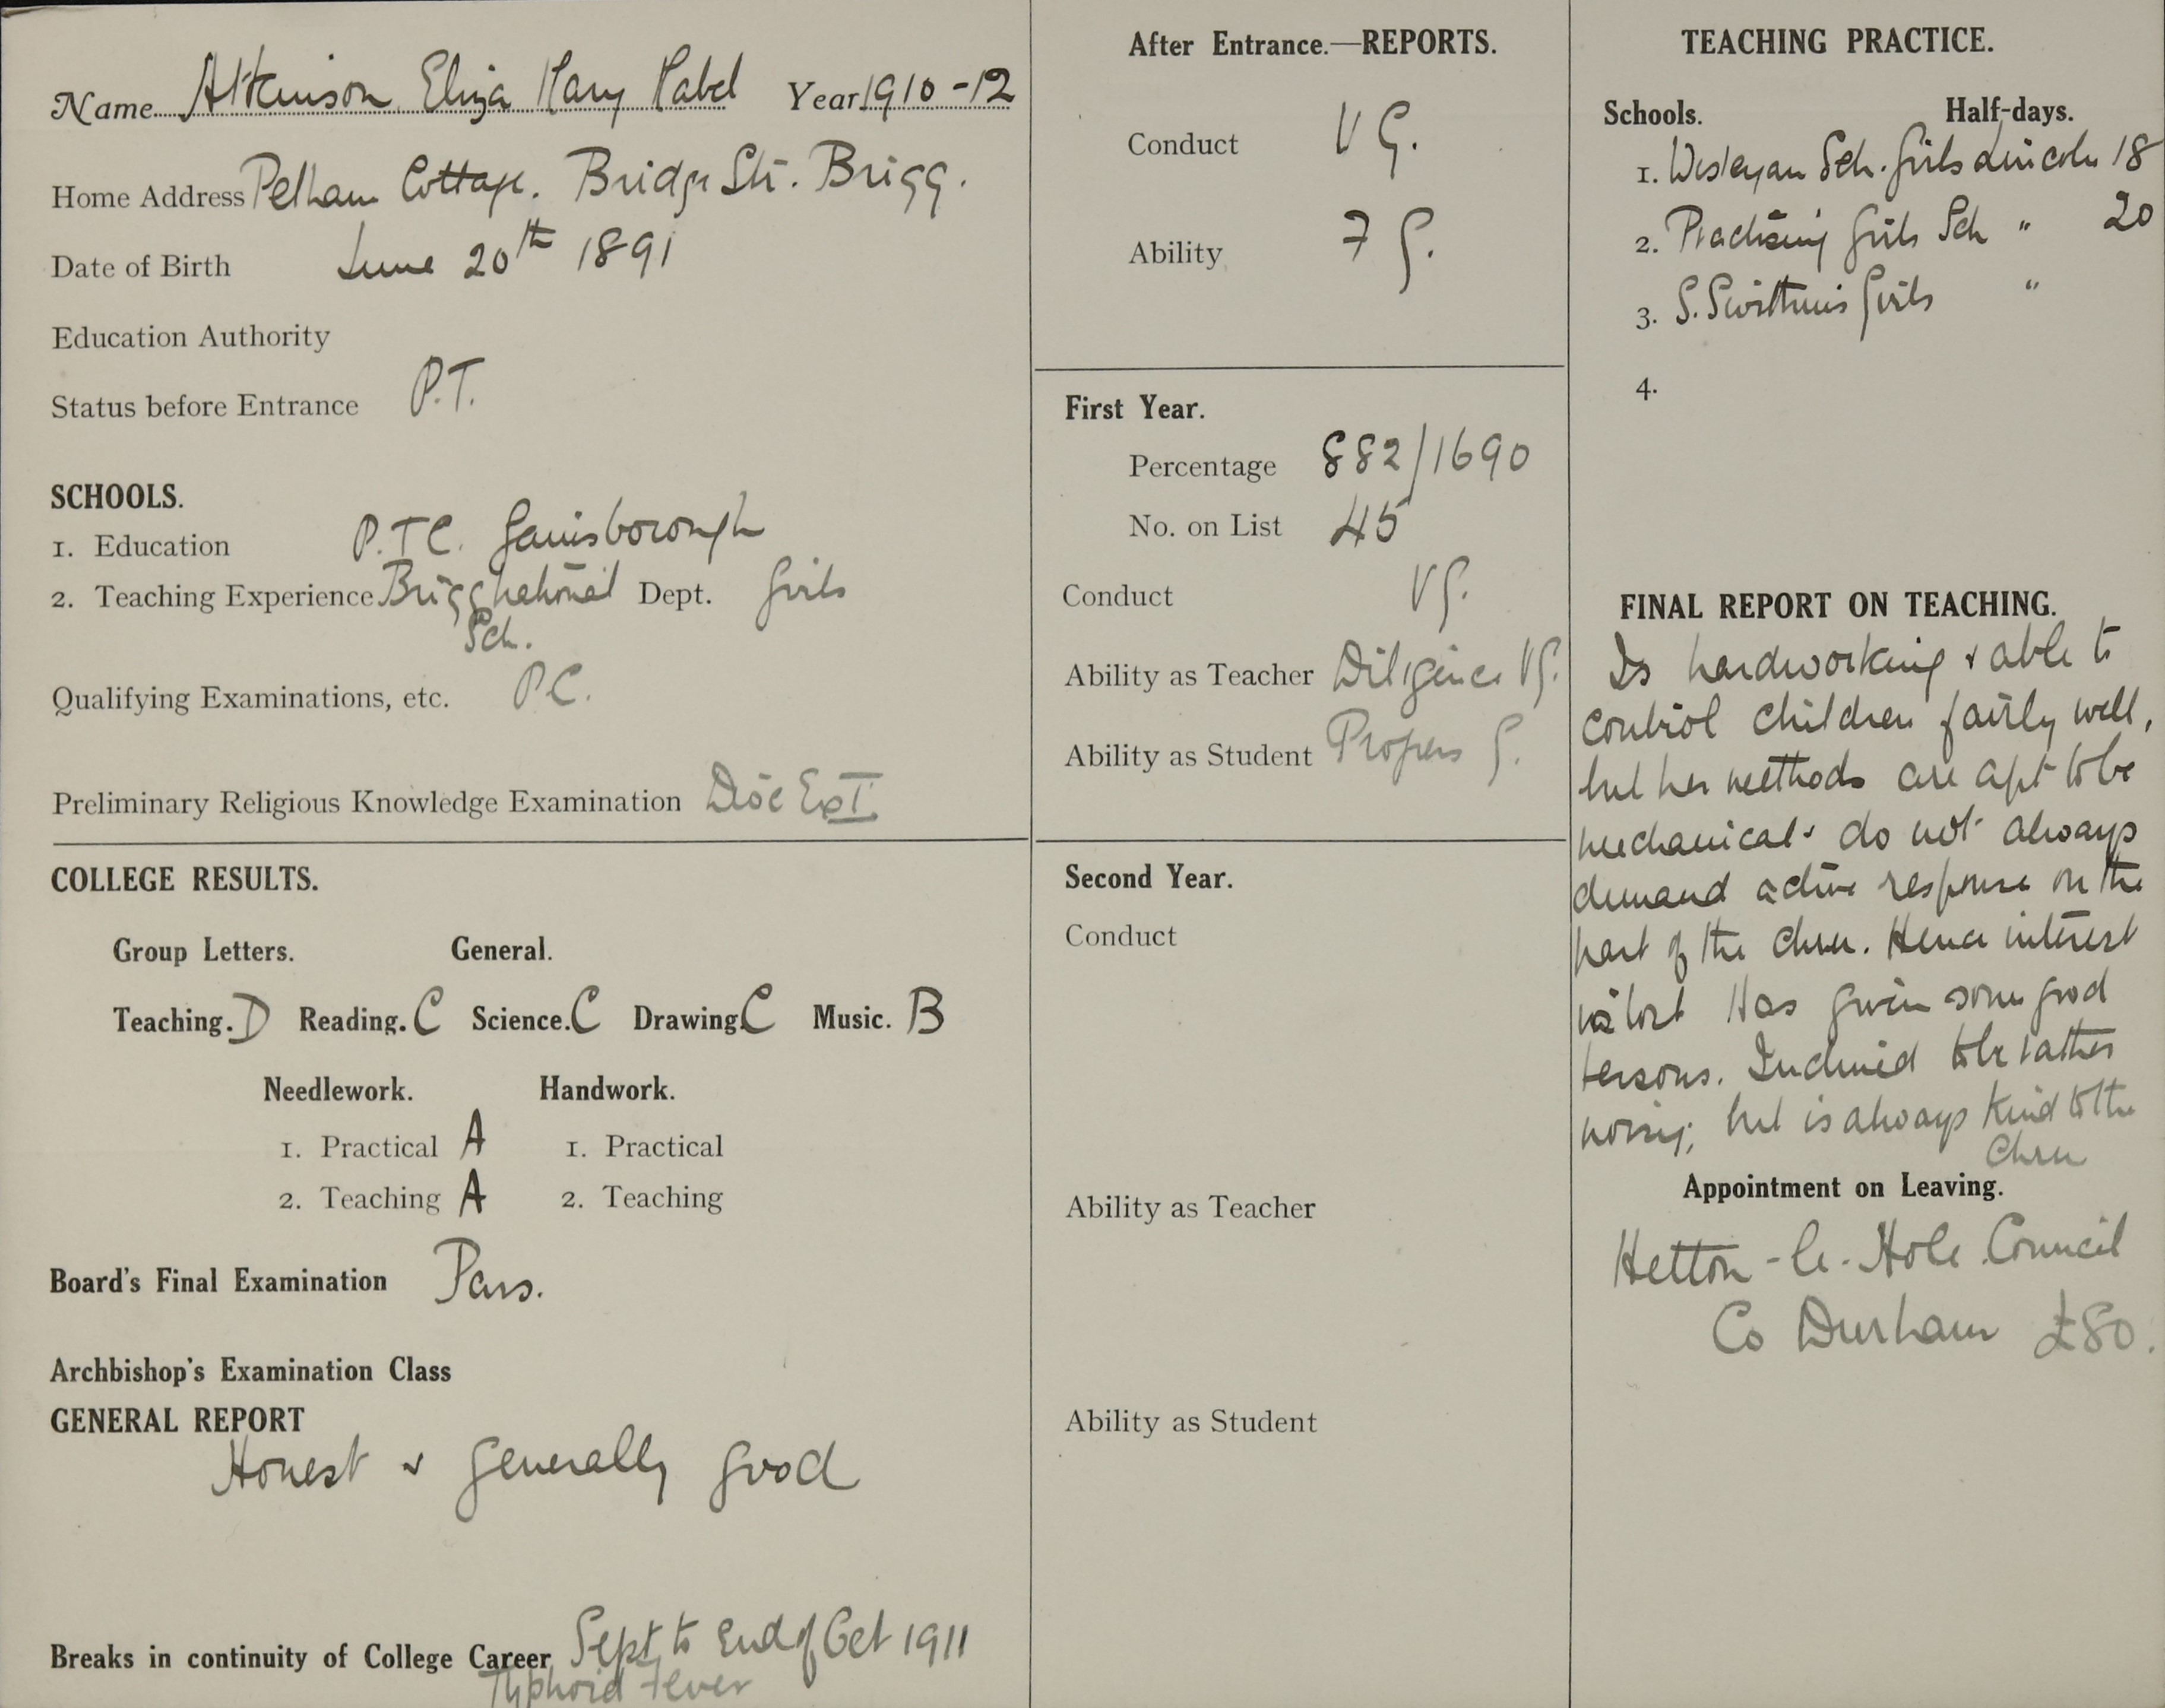 Name Atkinson Eliza Mary Mabel Year 1910-12
Home Address Pelham Cottage. Bridge St. Brigg.
Date of Birth June 20th 1891
Education Authority
Status before Entrance P.T.
SCHOOLS.
1. Education P.T.C. Gainsborough
2. Teaching Experience Brigg National Dept. Girls
Sch.
Qualifying Examinations, etc. P.C.
Preliminary Religious Knowledge Examination Dioc Ex I.
COLLEGE RESULTS.
Group Letters. General.
Teaching. D Reading. C Science. C Drawing. C Music. B
Needlework. Handwork.
1. Practical A 1. Practical
2. Teaching A 2. Teaching
Board's Final Examination Pass.
Archbishop's Examination Class
GENERAL REPORT
Honest & generally good
Breaks in continuity of College Career Sept to End of Oct 1911
Typhoid Fever
After Entrance.—REPORTS.
Conduct V G.
Ability F G.
First Year.
Percentage 882/1690
No. on List 45
Conduct VG.
Ability as Teacher Diligence VG.
Ability as Student Progress G.
Second Year.
Conduct
Ability as Teacher
Ability as Student
TEACHING PRACTICE.
Schools. Half-days.
1. Wesleyan Sch. Girls Lincoln 18
2. Practising Girls Sch " 20
3. S. Swithins Girls "
4.
FINAL REPORT ON TEACHING.
Is hardworking & able to
control children fairly well,
but her methods are apt to be
mechanical & do not always
demand active response on the
part of the chren. Hence interest
is lost Has given some good
lessons. Inclined to be rather
noisy; but is always kind to the
Chren
Appointment on Leaving.
Hetton-le-Hole Council
Co Durham £80.